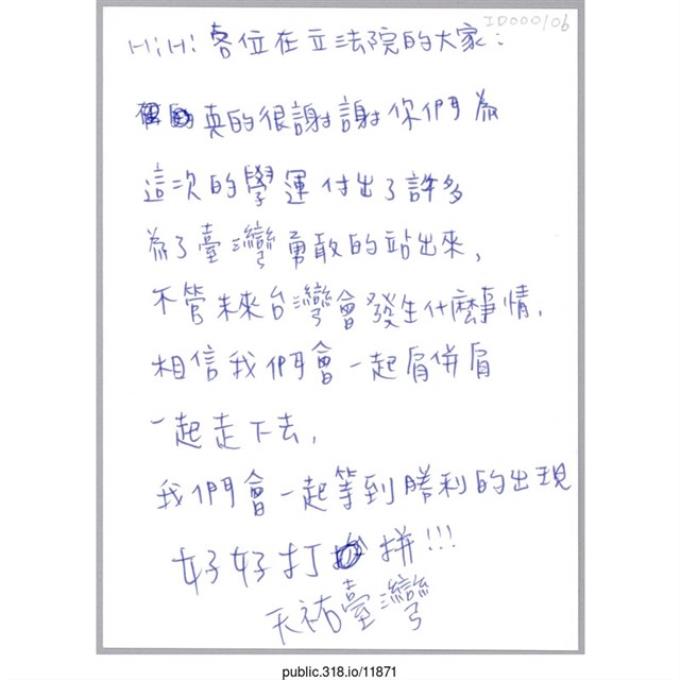 ID000106
Hi Hi 各位在立法院的大家：
真的很謝謝你們為
這次的學運付出了許多
為了臺灣勇敢的站出來，
不管未來台灣會發生什麼事情，
相信我們會一起肩併肩
一起走下去，
我們會一起等到勝利的出現
好好打拼!!!
天祐臺灣
public.318.io/11871